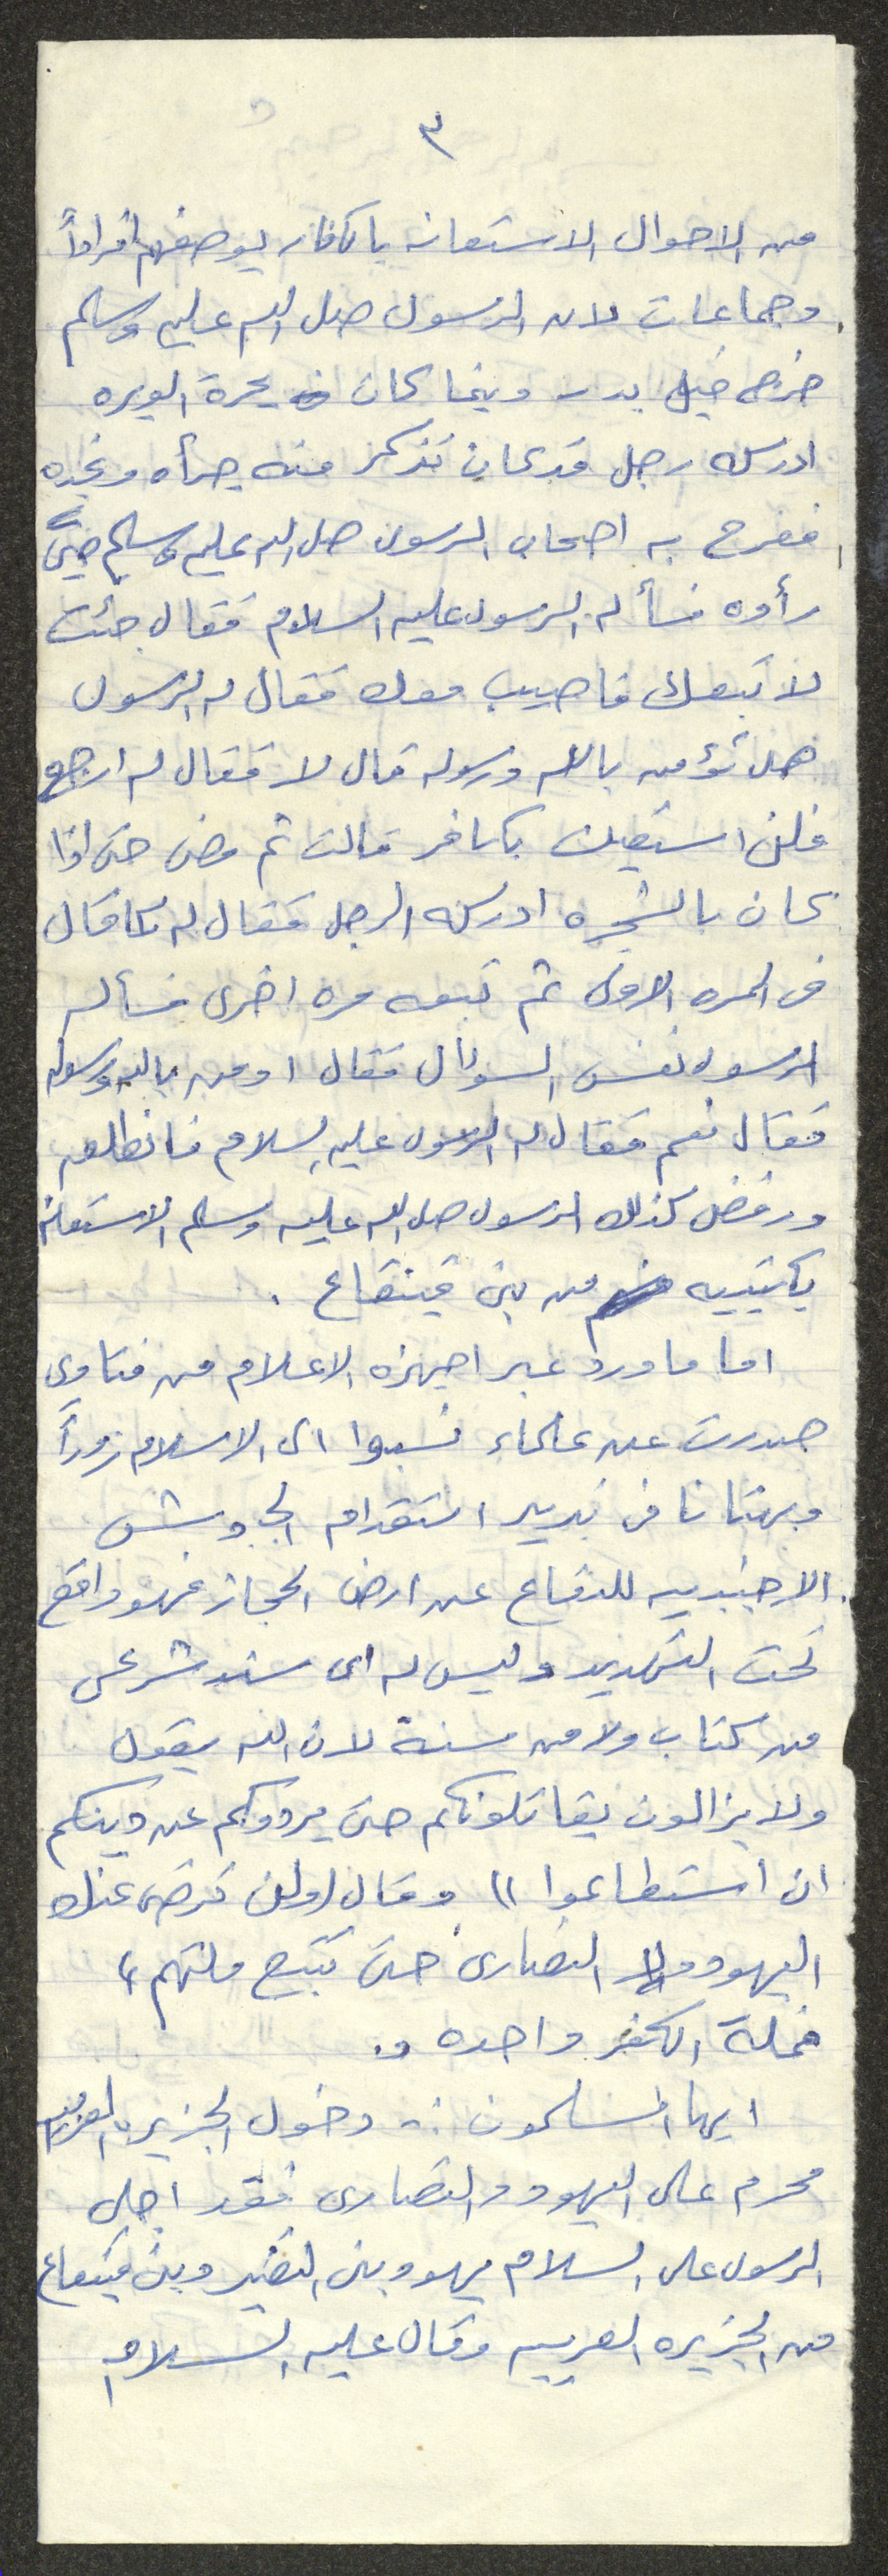 ٣
من الاحوال الاستعانه بالكفار بوصفهم افراداً
وجماعات لان الرسول صلى الله عليه وسلم
خرج قبل بدر وبينما كان بحرة الوبره
ادركه رجل قد كان تذكر منه جرأه ونجده
ففرح به اصحاب الرسول صلى الله عليه وسلم حين
رأوه فسأله الرسول عليه السلام فقال جئت
لاتبعك فاصيب معك فقال له الرسول
هل تؤمن بالله ورسوله قال لا فقال له ارجع
فلن استعين بكافر قالت ثم مضى حتى اذا
كان بالشجره ادركه الرجل فقال له كما قال
في المره الاولى ثم تبعه مره اخرى فسأله
الرسول نفس السوال فقال اومن بالله ورسوله
فقال نعم فقال له الرسول عليه السلام فانطلق
ورفض كذلك الرسول صلى الله عليه وسلم الاستعانه
بكتيبه من بني قينقاع .
اما ما ورد عبر اجهزه الاعلام من فتاوى
صدرت عن علماء نسبوا الى الاسلام زوراً
وبهتانا في تبرير استقدام الجيوش
الاجنبيه للدفاع عن ارض الحجاز فهو واقع
تحت التهديد وليس له اى سند شرعى
من كتاب ولا من سنة لان الله يقول
ولا يزالون يقاتلونكم حتى يردوكم عن دينكم
ان استطاعوا )) وقال (ولن ترضى عنك
اليهود ولا النصارى حتى تتبع ملتهم )
فملة الكفر واحده .
ايها المسلمون :- دخول الجزيره العربيه
محرم على اليهود والنصارى فقد اجلى
الرسول على السلام يهود بنى النضير وبنى قينقاع
من الجزيره العربيه وقال عليه السلام